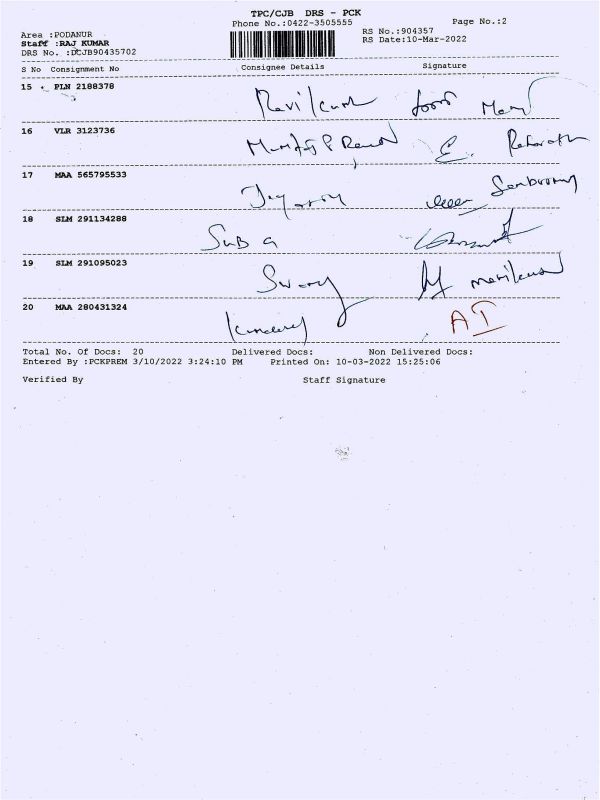 TPC/CJB DRS - PCK
Phone No.:0422-3505555
Page No.:2
Area :PODANUR
RS No.:904357
Staff :RAJ KUMAR
RS Date:10-Mar-2022
DRS No. :DCJB90435702
S No Consignment No Consignee Details Signature
15 PLN 2188378 Ravikumar
16 VLR 3123736
17 MAA 565795533
18 SLM 291134288 Suba
19 SLM 291095023
20 MAA 280431324 AT
Total No. Of Docs: 20 Delivered Docs: Non Delivered Docs:
Entered By :PCKPREM 3/10/2022 3:24:10 PM Printed On: 10-03-2022 15:25:06
Verified By Staff Signature